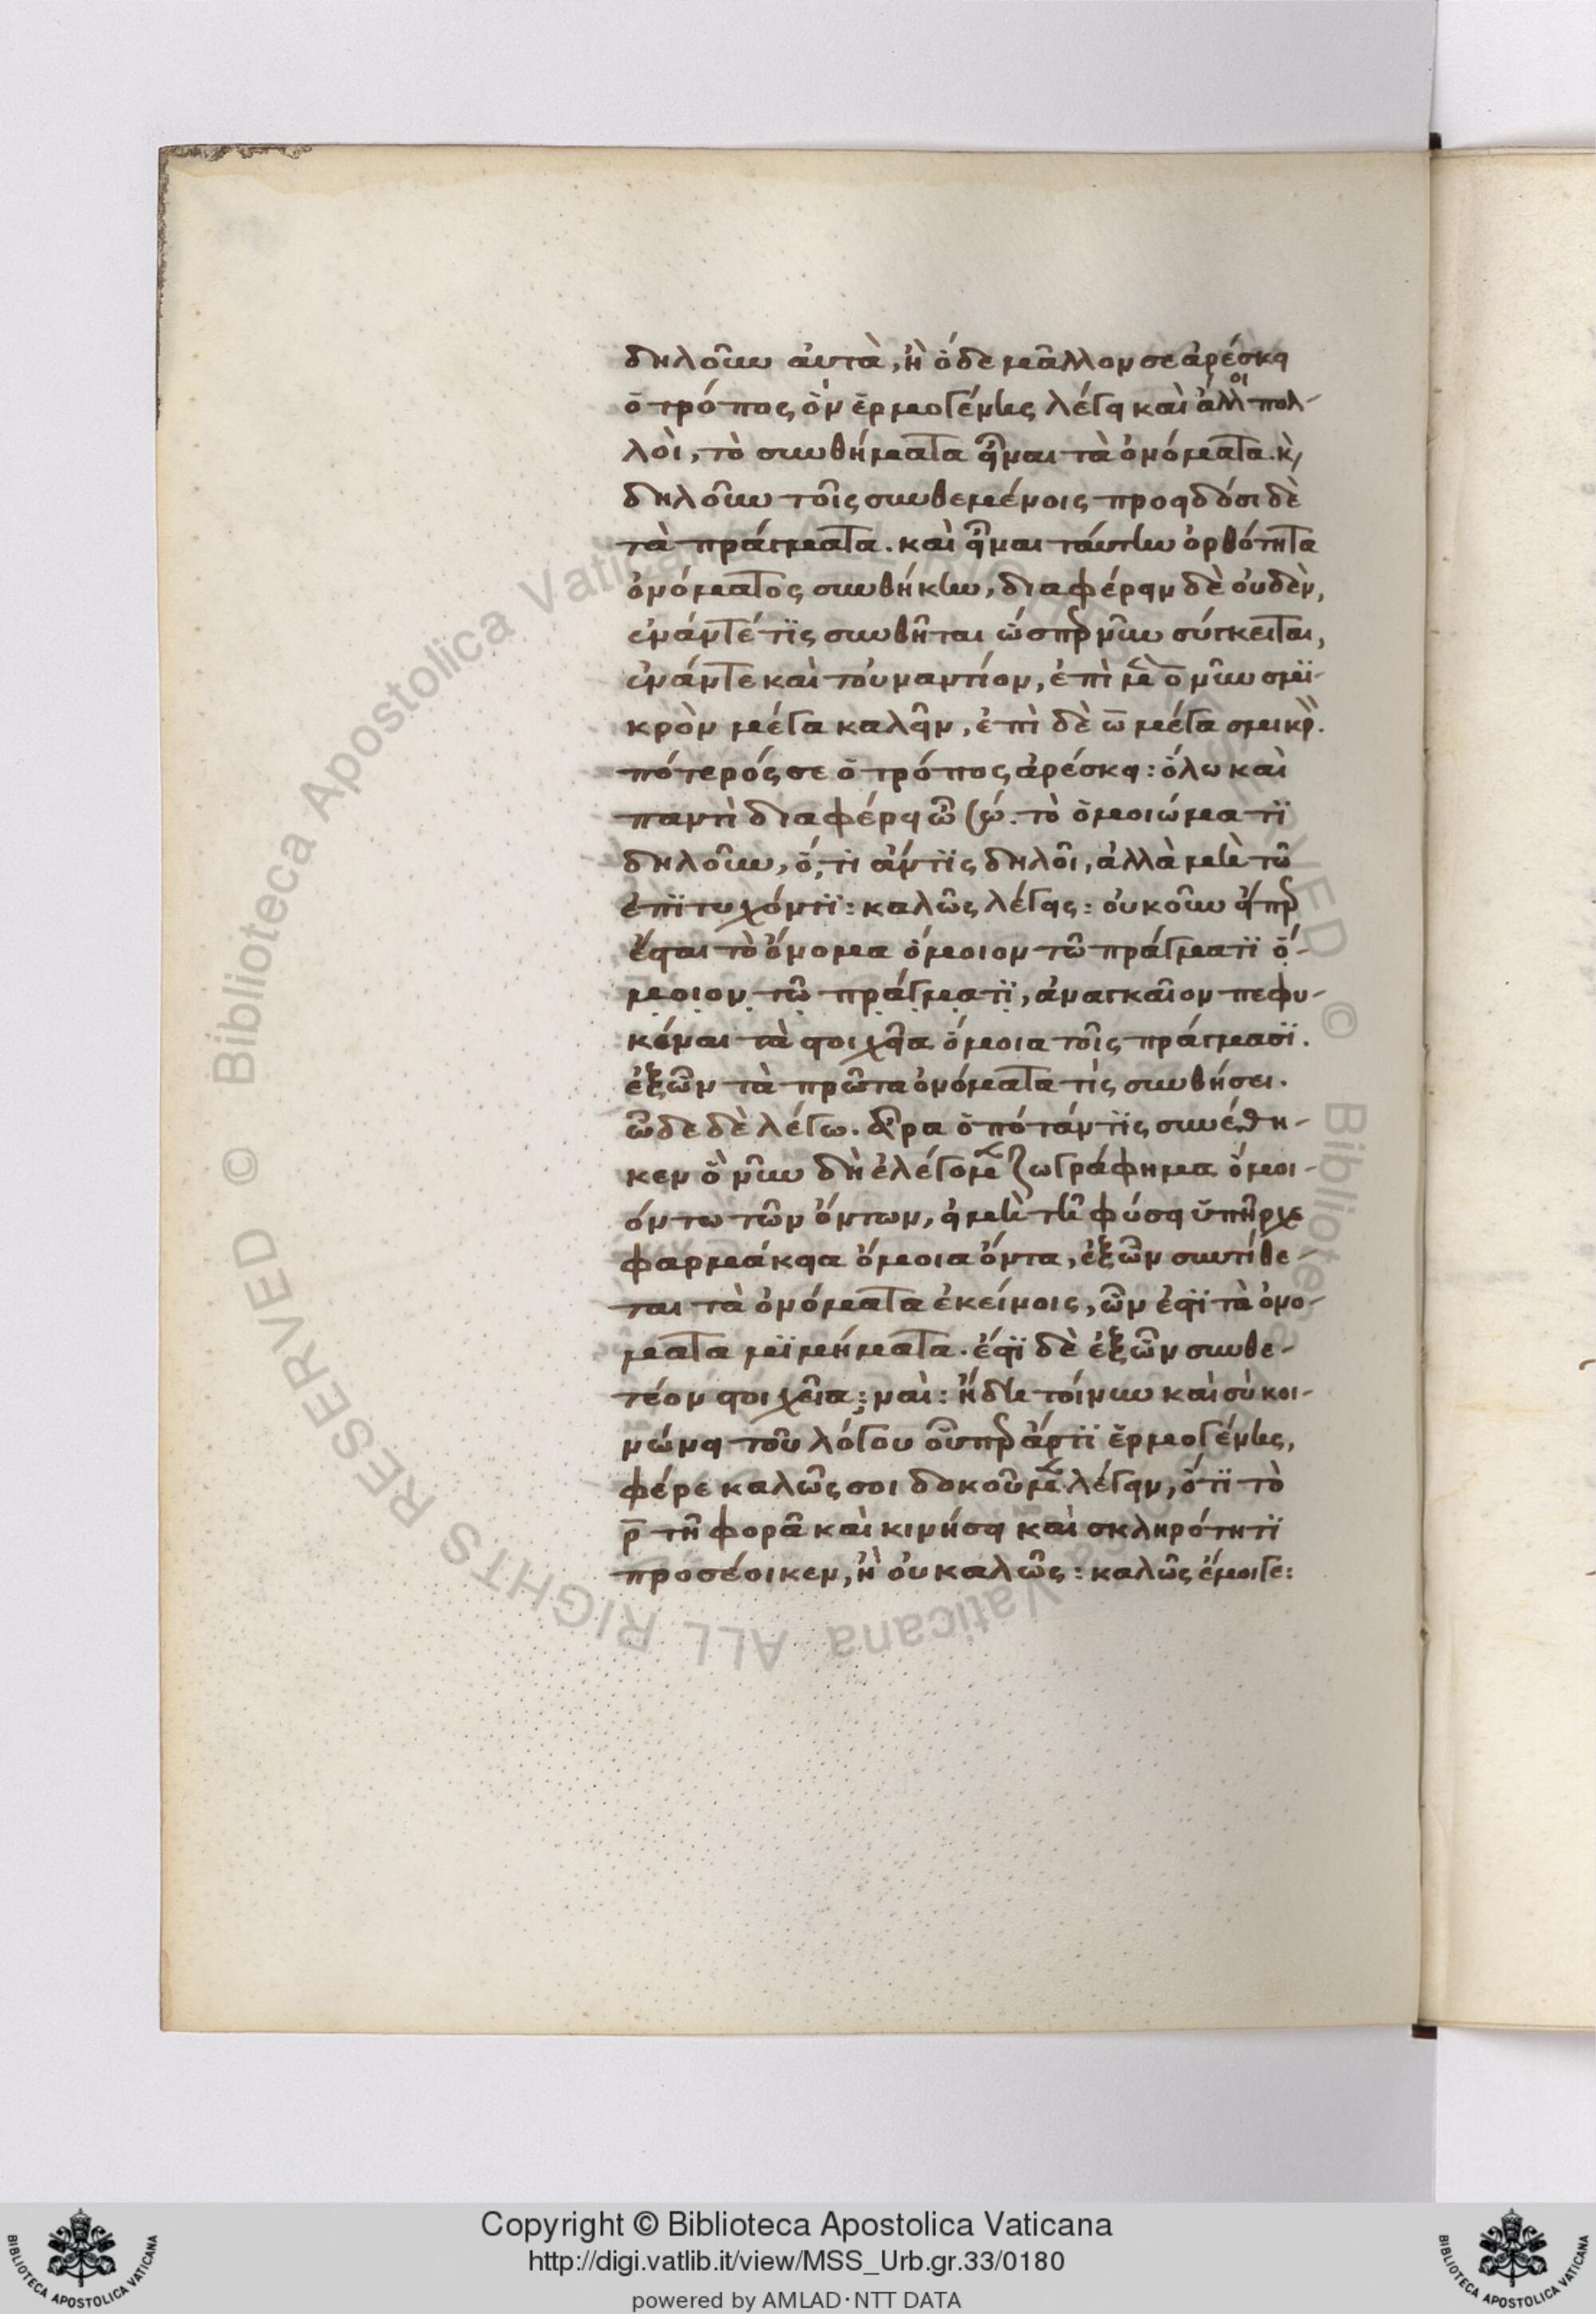 δηλοῦν αὐτὰ, ἢ ὅδε μᾶλλον σε ἀρέσκει
ὁ τρόπος ὃν ἑρμογένης λέγει καὶ ἄλλοι πολ-
λοὶ, τὸ συνθήματα εἶναι τὰ ὀνόματα. κὶ
δηλοῦν τοῖς συνθεμένοις προειδόσι δὲ
τὰ πράγματα. καὶ εἶναι ταύτην ὀρθότητα
ὀνόματος συνθήκην, διαφέρειν δὲ οὐδὲν,
ἐνάντέ τις συνθῆται ὥσπερ νῦν σύγκειται,
ἐνάντε καὶ τοὐναντίον, ἐπὶ μὲν ὃ νῦν σμι-
κρὸν μέγα καλεῖν, ἐπὶ δὲ ὧ μέγα σμικρὸν.
πότερός σε ὁ τρόπος ἀρέσκει: ὅλω καὶ
παντὶ διαφέρει ὦ σώ. τὸ ὁμοιώματι
δηλοῦν, ὅ,τι ἄντις δηλοῖ, ἀλλὰ μὴ τῶ
ἐπιτυχόντι: καλῶς λέγεις: οὐκοῦν εἴπερ
ἔσται τὸ ὄνομα ὅμοιον τῶ πράγματι ὅ-
μοιον τῶ πράγματι, ἀναγκαῖον πεφυ-
κέναι τὰ στοιχεῖα ὅμοια τοῖς πράγμασι.
ἐξὧν τὰ πρῶτα ὀνόματα τὶς συνθήσει.
ὧδε δὲ λέγω. ἆρα ὁπότάντις συνέθη-
κεν ὃ νῦν δὴ ἐλέγομεν ζωγράφημα ὅμοι-
όν τω τῶν ὄντων, εἰ μὴ τῆ φύσει ὑπῆρχε
φαρμάκεια ὅμοια ὄντα, ἐξὧν συντίθε-
ται τὰ ὀνόματα ἐκείνοις, ὧν ἐστὶ τὰ ὀνο-
ματα μιμήματα. ἔστι δὲ ἐξὧν συνθε-
τέον στοιχεῖα; ναὶ: ἤδη τοίνυν καὶ σὺ κοι-
νώνει τοῦ λόγου οὗπερ ἄρτι ἑρμογένης,
φέρε καλῶς σοι δοκοῦμεν λέγειν, ὅτι τὸ
ρ τῆ φορᾶ καὶ κινήσει καὶ σκληρότητι
προσέοικεν, ἢ οὐ καλῶς: καλῶς ἔμοιγε:
Copyright © Biblioteca Apostolica Vaticana
http://digi.vatlib.it/view/MSS_Urb.gr.33/0180
powered by AMLAD·NTT DATA
BIBLIOTECA APOSTOLICA VATICANA
BIBLIOTECA APOSTOLICA VATICANA
© Biblioteca Apostolica Vaticana ALL RIGHTS RESERVED © Biblioteca Apostolica Vaticana ALL RIGHTS RESERVED